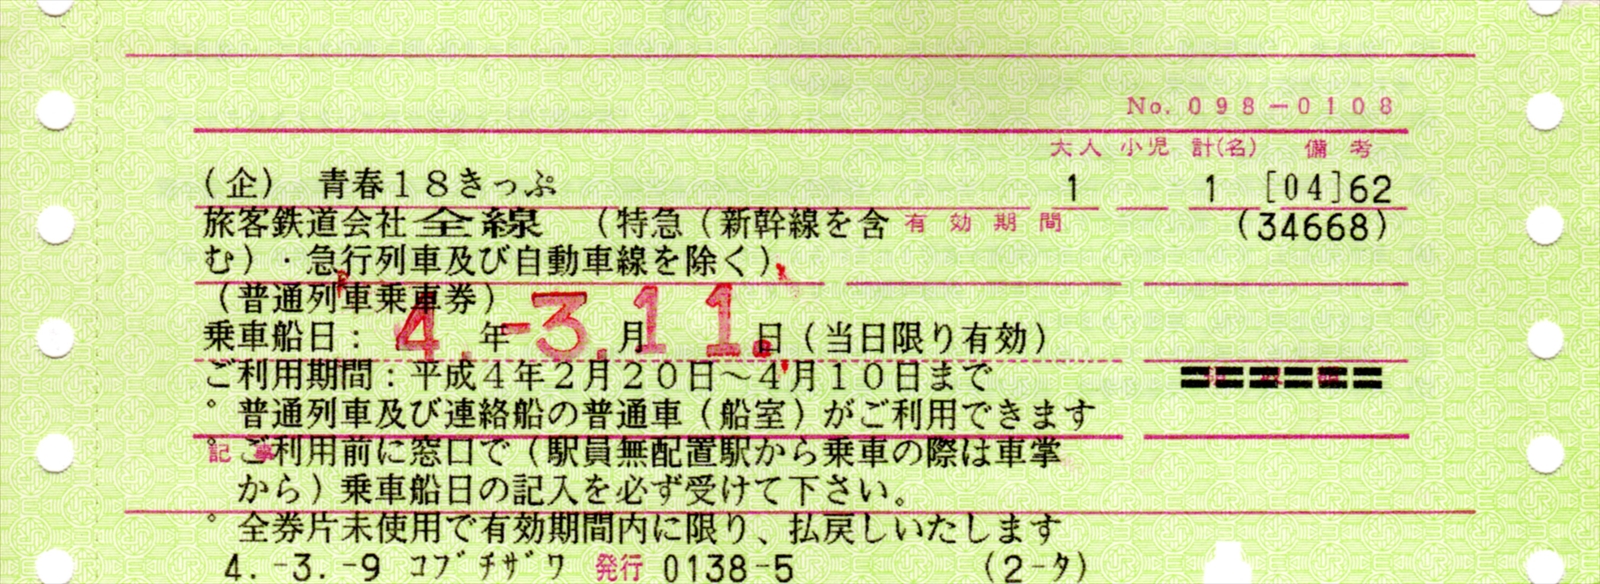 No. 098-0108
大人 小児 計(名) 備考
(企) 青春18きっぷ 1 1 [04]62
旅客鉄道会社全線 (特急(新幹線を含 有効期間 (34668)
む)・急行列車及び自動車線を除く)
(普通列車乗車券)
乗車船日: 4.年-3.月11.日(当日限り有効)
ご利用期間:平成4年2月20日~4月10日まで
°普通列車及び連絡船の普通車(船室)がご利用できます
°ご利用前に窓口で(駅員無配置駅から乗車の際は車掌
記事
から)乗車船日の記入を必ず受けて下さい。
°全券片未使用で有効期間内に限り、払戻しいたします
4.-3.-9 コブチザワ 発行 0138-5 (2-タ)